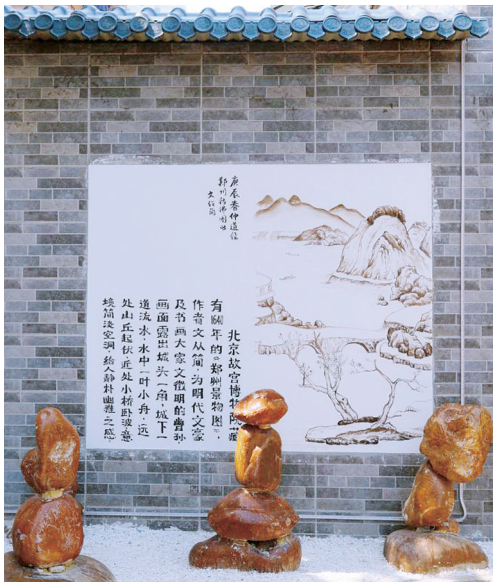 庚辰春仲道經
鄭州
文從簡
北京故宫博物院藏
有年的《郑州景物图》,
作者文从简,为明代文豪
及书画大家文徵明的曾孙
画面露出城头一角,城下一
道流水,水中一叶小舟,远
处山丘起伏,近处小桥卧波,意
境简淡空洞,给人静朴幽雅之感